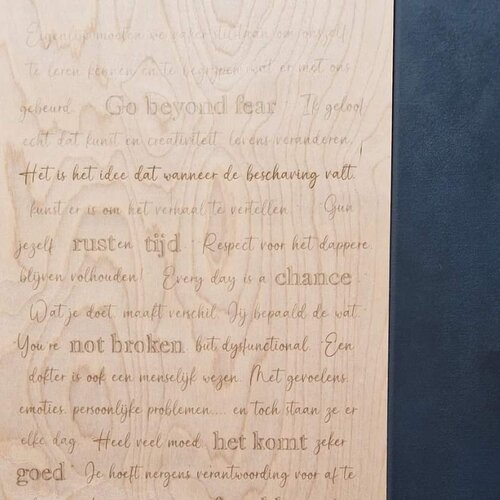 Eigenlijk moeten we vaker stil staan om onszelf
te leren kennen en te begrijpen wat er met ons
gebeurd. Go beyond fear. Ik geloof
echt dat kunst en creativiteit levens veranderen.
Het is het idee dat wanneer de beschaving valt,
kunst er is om het verhaal te vertellen. Gun
jezelf rust en tijd. Respect voor het dappere
blijven volhouden! Every day is a chance.
Wat je doet, maakt verschil. Jij bepaald de wat.
You're not broken, but dysfunctional. Een
dokter is ook een menselijk wezen. Met gevoelens,
emoties, persoonlijke problemen.... en toch staan ze er
elke dag. Heel veel moed, het komt zeker
goed. Je hoeft nergens verantwoording voor af te